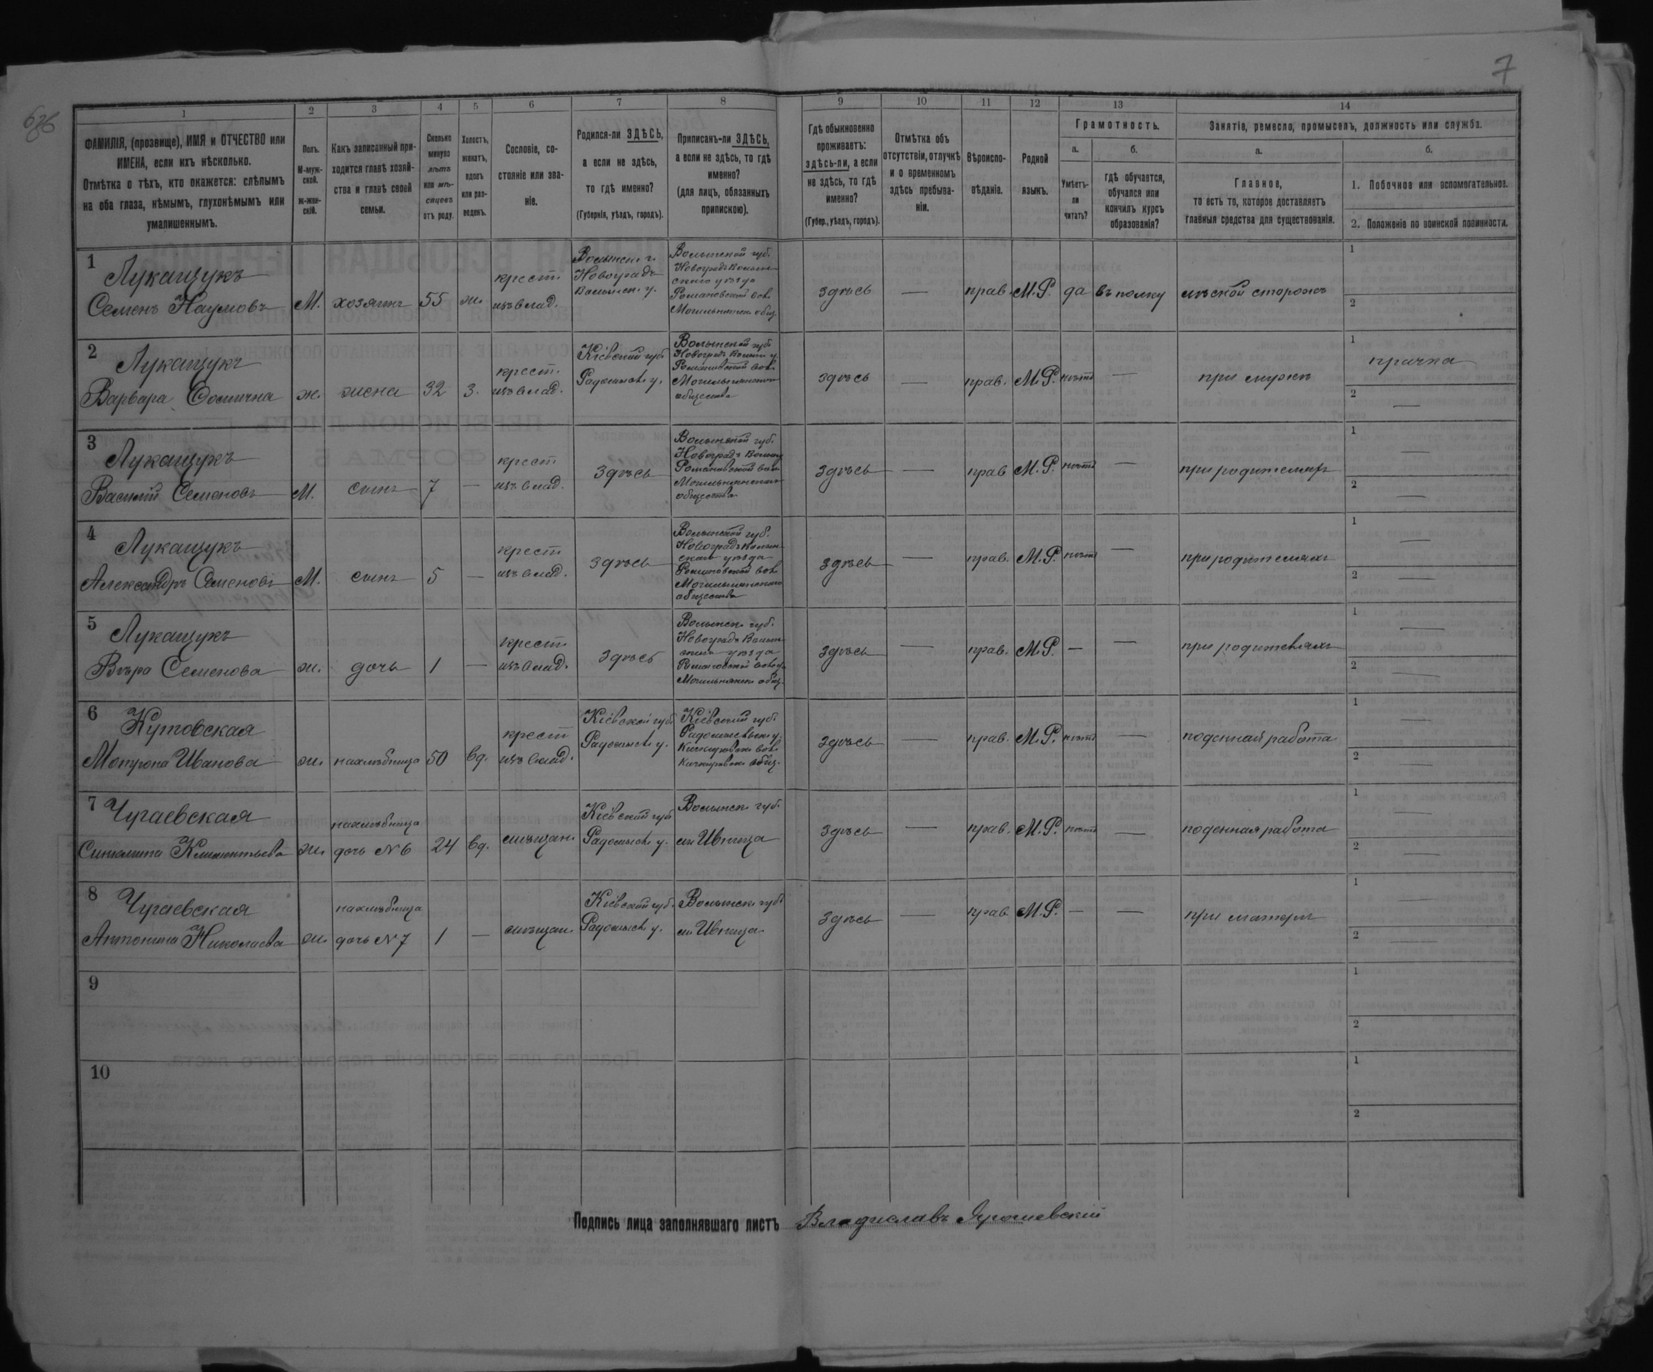 7
686
1
2
3
4
5
6
7
8
9
10
11
12
13
14
ФАМИЛІЯ, (прозвище), ИМЯ и ОТЧЕСТВО или
ИМЕНА, если ихъ нѣсколько.
Отмѣтка о тѣхъ, кто окажется: слѣпымъ
на оба глаза, нѣмымъ, глухонѣмымъ или
умалишеннымъ.
Полъ.
М-муж-
ской.
ж-жен-
скій.
Какъ записанный при-
ходится главѣ хозяй-
ства и главѣ своей
семьи.
Сколько
минуло
лѣтъ
или мѣ-
сяцевъ
отъ роду.
Холостъ,
женатъ,
вдовъ
или раз-
веденъ.
Сословіе, со-
стояніе или зва-
ніе.
Родился-ли ЗДѢСЬ,
а если не здѣсь,
то гдѣ именно?
(Губернія, уѣздъ, городъ).
Приписанъ-ли ЗДѢСЬ,
а если не здѣсь, то гдѣ
именно?
(для лицъ, обязанныхъ
припискою).
Гдѣ обыкновенно
проживаетъ:
здѣсь-ли, а если
не здѣсь, то гдѣ
именно?
(Губер., уѣздъ, городъ).
Отмѣтка объ
отсутствіи, отлучкѣ
и о временномъ
здѣсь пребыва-
ніи.
Вѣроиспо-
вѣданіе.
Родной
языкъ.
Грамотность.
а.
б.
Умѣетъ-
ли
читать?
гдѣ обучается,
обучался или
кончилъ курсъ
образованія?
Занятіе, ремесло, промыселъ, должность или служба.
а.
б.
Главное,
то есть то, которое доставляетъ
главныя средства для существованія.
1. Побочное или вспомогательное.
2. Положеніе по воинской повинности.
1
Лукащукъ
Семенъ Наумовъ
М.
хозяинъ
55
ж.
крест.
изъ влад.
Волынск. г.
Новоградъ
Волынск. у.
Волынской губ.
Романовской вол.
здѣсь
—
прав.
М.Р.
да
въ полку
лѣсной сторожъ
1
2
2
Лукащукъ
Варвара
ж.
жена
32
з.
крест.
изъ влад.
Кіевской губ.
Радомысл. у.
Волынской губ.
Романовской вол.
общества
здѣсь
—
прав.
М.Р.
нѣтъ
—
при мужѣ
1
прачка
2
—
3
Лукащукъ
Василій Семеновъ
М.
сынъ
7
—
крест.
изъ влад.
Здѣсь
Волынской губ.
Романовской вол.
общества
здѣсь
—
прав.
М.Р.
нѣтъ
—
при родителяхъ
1
2
—
4
Лукащукъ
Александръ Семеновъ
М.
сынъ
5
—
крест.
изъ влад.
здѣсь
Волынской губ.
Романовской вол.
общества
здѣсь
—
прав.
М.Р.
нѣтъ
—
при родителяхъ
1
—
2
—
5
Лукащукъ
Вѣра Семенова
ж.
дочь
1
—
крест.
изъ влад.
Здѣсь
Волынск. губ.
здѣсь
—
прав.
М.Р.
—
—
при родителяхъ
1
—
2
—
6
Кутовская
Мотрона Иванова
ж.
нахлѣбница
50
вд.
крест.
изъ влад.
Кіевской губ.
Радомысл. у.
Кіевской губ.
здѣсь
—
прав.
М.Р.
нѣтъ
—
поденная работа
1
—
2
—
7
Чугаевская
Климентьева
ж.
нахлѣбница
дочь №6
24
вд.
мѣщан.
Кіевской губ.
Радомысл. у.
Волынск. губ.
м. Ивница
здѣсь
—
прав.
М.Р.
нѣтъ
—
поденная работа
1
—
2
—
8
Чугаевская
Антонина Николаева
ж.
нахлѣбница
дочь №7
1
—
мѣщан.
Кіевской губ.
Радомысл. у.
Волынск. губ.
м. Ивница
здѣсь
—
прав.
М.Р.
—
—
при матери
1
—
2
—
9
1
2
10
1
2
Подпись лица заполнявшаго листъ Владиславъ Ярошевскій